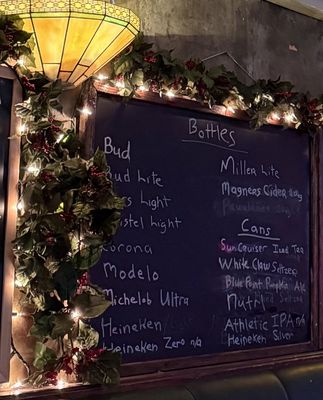 Bottles
Bud
Bud Lite
Light
Light
Corona
Modelo
Michelob Ultra
Heineken
Heineken Zero n/a
Miller Lite
Magners Cider
Cans
SunCruiser Iced Tea
White Claw Seltzer
Blue Point Pumpkin Ale
Seltzer
Athletic IPA n/a
Heineken Silver